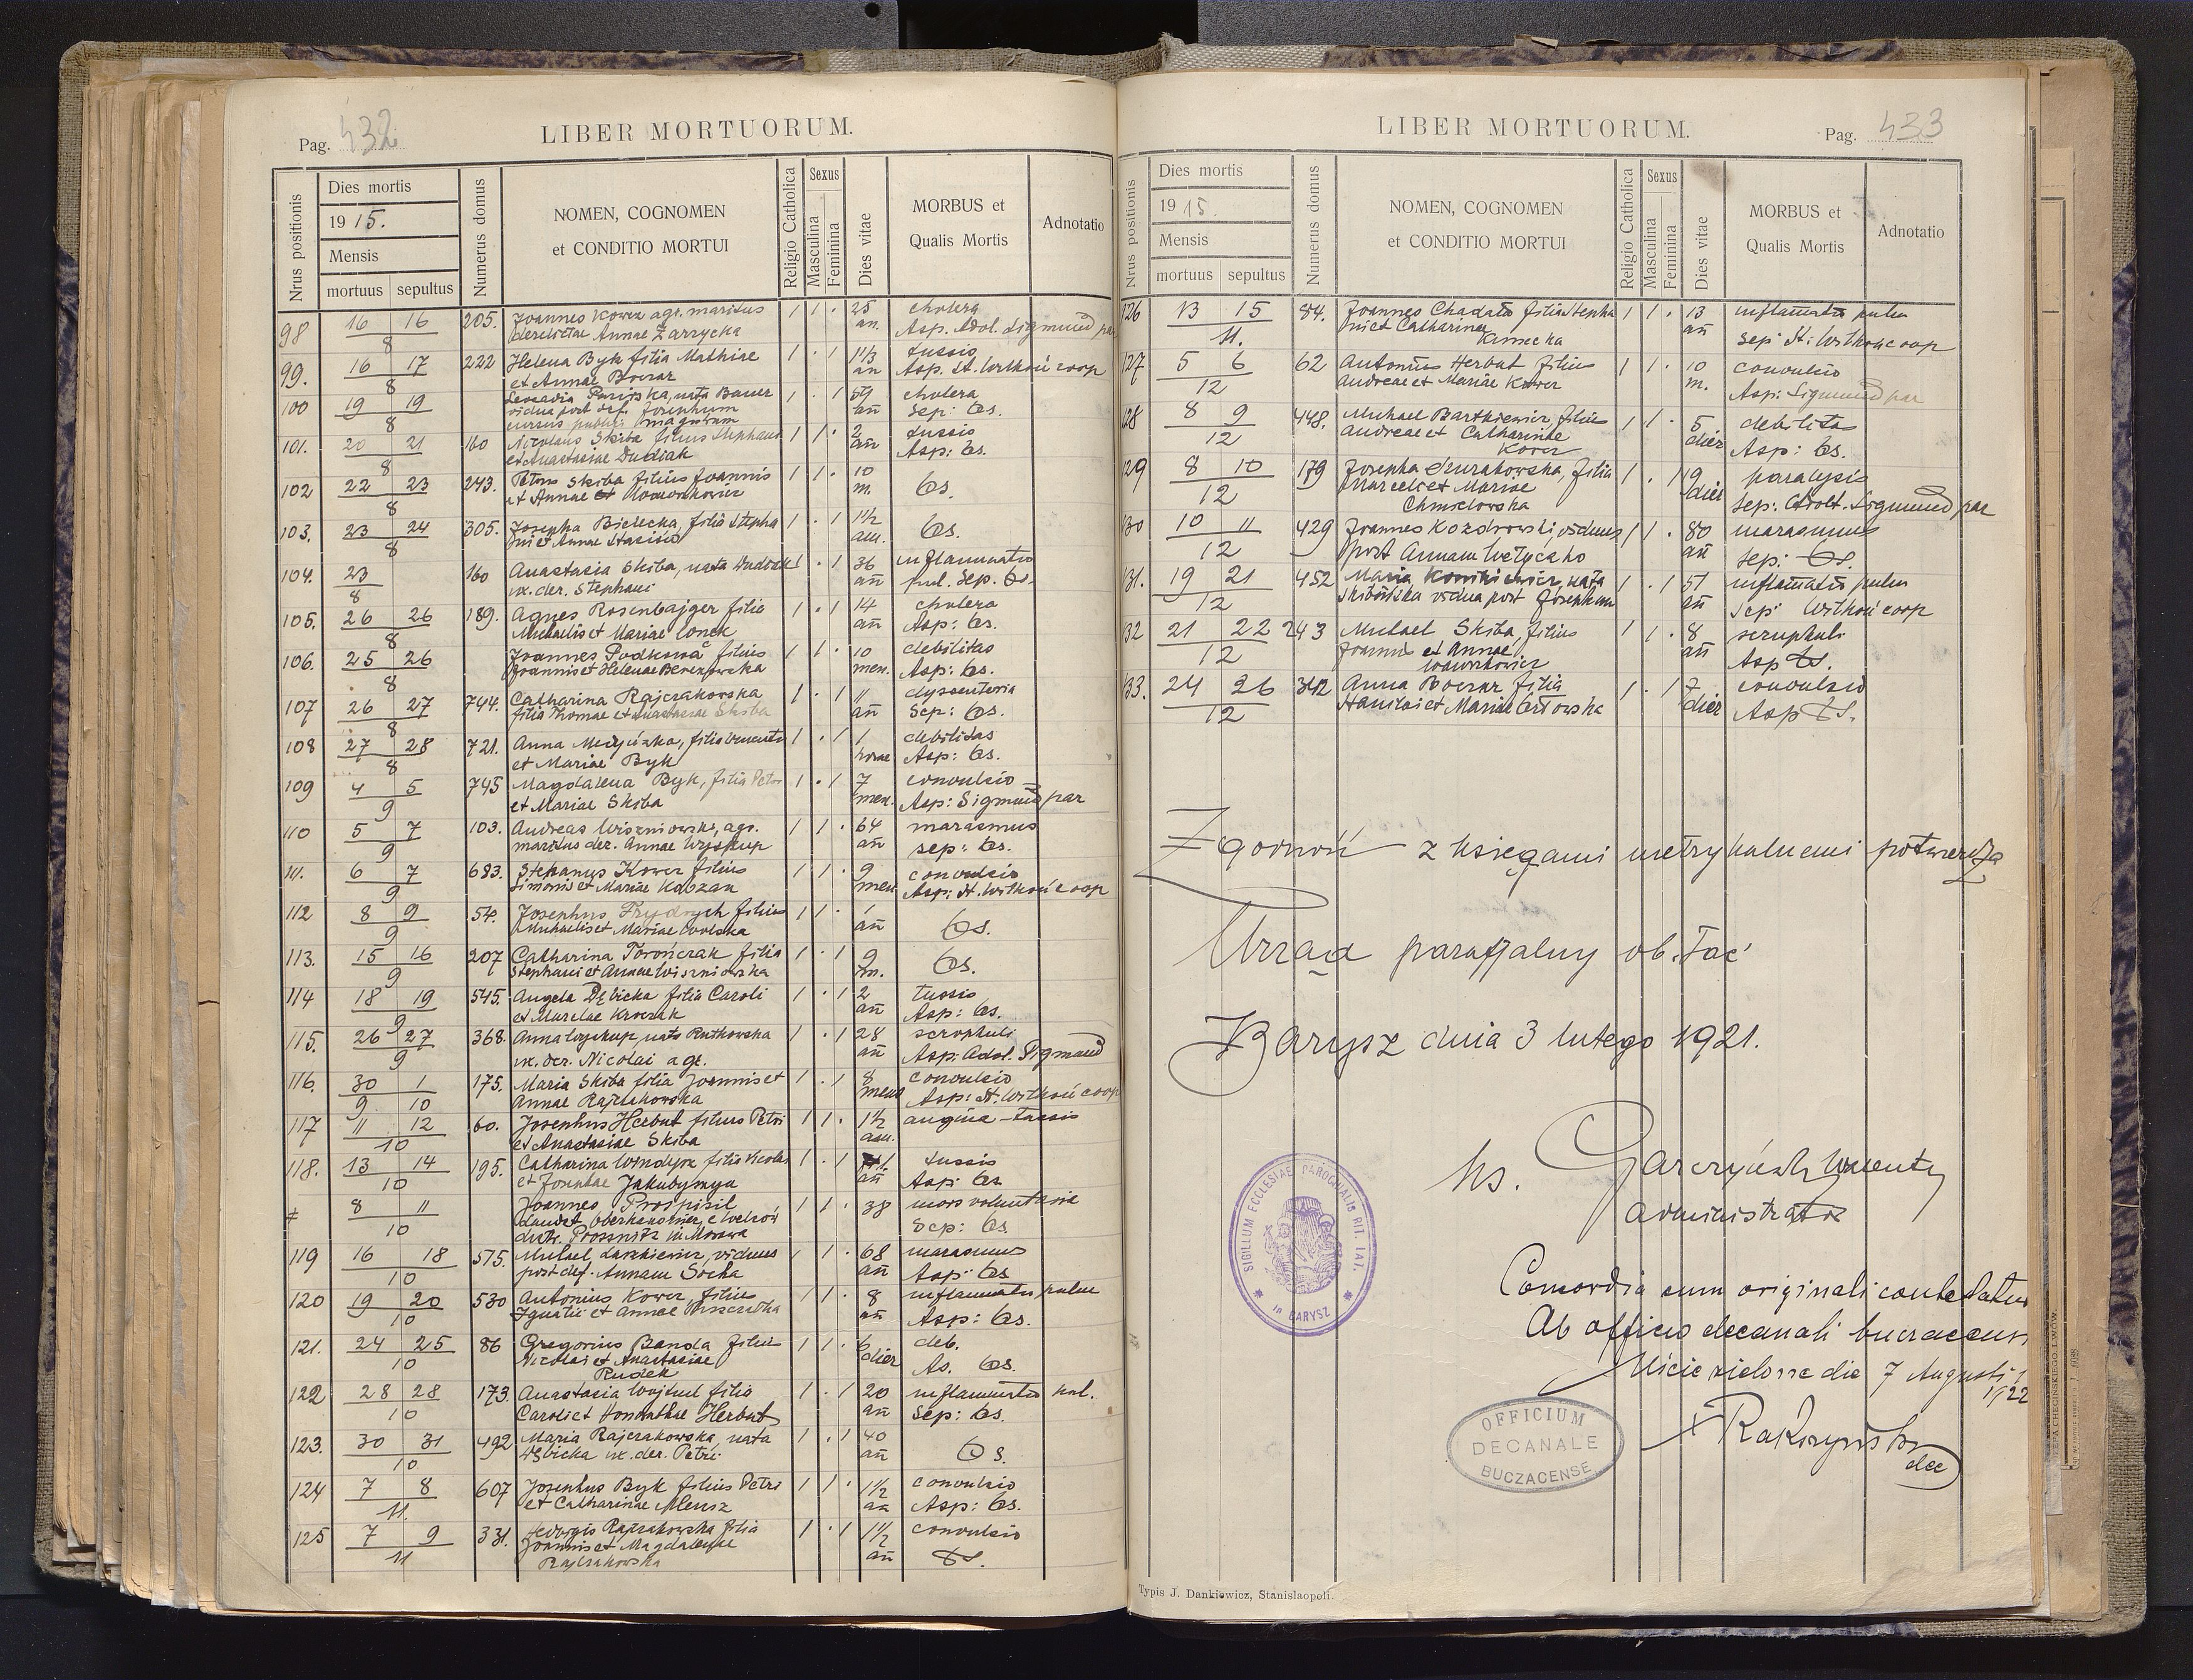 Pag. 432
LIBER MORTUORUM.
Nrus positionis
Dies mortis
1915.
Mensis
mortuus sepultus
Numerus domus
NOMEN, COGNOMEN
et CONDITIO MORTUI
Religio Catholica
Sexus
Masculina
Feminina
Dies vitae
MORBUS et
Qualis Mortis
Adnotatio
98 16 16 205. Joannes Kower agr. maritus 1 1 . 25 cholera
8 Benedictae Annae Zarzycka an. Asp. Adol. Sigmund par
99. 16 17 222 Helena Byk filia Mathiae 1 . 1 1 1/3 tussis
8 et Annae Boczar an Asp. St. Witkoń coop
100 19 19 Leocadia nata Bauer 1 . 1 59 cholera
8 vidua post def. Josephum an Sep: Os.
101. 20 21 160 Nicolaus Skiba filius Stephani 1 1 . 2 tussis
8 et Anastasiae Dudiak an Asp: Os.
102 22 23 243. Petrus Skiba filius Joannis 1 1 . 10
8 et Annae m. Os.
103. 23 24 305. Josepha Bielecka, filia Stepha 1 . 1 1 1/2
8 ni et Annae Stasisin ann. Os.
104. 23 160 Anastasia Skiba, nata Dudiak 1 . 1 36 inflammatio
8 ux. der. Stephani an pul. Sep. Os.
105. 26 26 189. Agnes Rosenbajger filia 1 . 1 14 cholera
8 Michaelis et Mariae Lonek an Asp: Os.
106. 25 26 Joannes Podkowa filius 1 1 . 10 debilitas
8 Joannis et Helenae Berezowska men. Asp: Os.
107 26 27 744. Catharina Rajczakowska 1 . 1 11 dyssenteria
8 filia Thomae et Anastasiae Skiba an Sep: Os.
108 27 28 721. Anna filia Vincentii 1 . 1 1 debilitas
8 et Mariae Byk horae Asp: Os.
109 4 5 745 Magdalena Byk, filia Petri 1 . 1 7 convulsio
9 et Mariae Skiba men. Asp: Sigmund par
110 5 7 103. Andreas Wiszniowski, agr. 1 1 . 64 marasmus
9 maritus der. Annae Wyskup an sep: Os.
111. 6 7 683. Stephanus Kower filius 1 1 . 9 convulsio
9 Simonis et Mariae Kobzan men Asp: St. Witkoń coop
112 8 9 54. Josephus Frydrych filius 1 1 . 1
9 Michaelis et Mariae Wolska an Os.
113. 15 16 207 Catharina Torończak filia 1 . 1 9
9 Stephani et Annae Wiszniowska m. Os.
114 18 19 545. Angela Dębicka filia Caroli 1 . 1 2 tussis
9 et Marelae Kroczak an Asp: Os.
115. 26 27 368. Anna Wyskup, nata Rutkowska 1 . 1 28 scrophuli
9 ux. der. Nicolai agr. an Asp: Adol. Sigmund
116. 30 1 175. Maria Skiba filia Joannis et 1 . 1 8 convulsio
9 10 Annae Rajczakowska mens Asp: St. Witkoń coop
117 11 12 60. Josephus Herbut filius Petri 1 1 . 1 1/2 angina tussis
10 et Anastasiae Skiba ann.
118. 13 14 195. Catharina Windyk filia Nicolai 1 . 1 tussis
10 et Josephae Jakubymyn an Asp: Os
8 11 Joannes Prospisil 1 1 . 38 mors voluntaria
10 Sep: Os
distr. Prossnitz in Morawa
119 16 18 575. Michael Laszkiewicz, viduus 1 1 . 68 marasmus
10 post def. Annam Socha an Asp: Os
120 19 20 530 Antonius Kower, filius 1 1 . 8 inflammatio pulm
10 Ignatii et Annae an Asp: Os.
121. 24 25 86 Gregorius Banda filius 1 1 . 6 deb.
10 Nicolai et Anastasiae dier As. Os.
Rudek
122 28 28 173. Anastasia Wojtul filia 1 . 1 20 inflammatio pul.
10 Caroli et Herbut an Sep: Os.
123. 30 31 492 Maria Rajczakowska, nata 1 . 1 40
10 Dębicka ux. der. Petri an Os.
124 7 8 607 Josephus Byk filius Petri 1 1 . 1 1/2 convulsio
11. et Catharinae Mensz an Asp: Os.
125 7 9 331. Rajczakowska filia 1 . 1 1 1/2 convulsio
11 Joannis et Magdalenae an Os.
Rajczakowska
LIBER MORTUORUM.
Pag. 433
Nrus positionis
Dies mortis
1915
Mensis
mortuus sepultus
Numerus domus
NOMEN, COGNOMEN
et CONDITIO MORTUI
Religio Catholica
Sexus
Masculina
Feminina
Dies vitae
MORBUS et
Qualis Mortis
Adnotatio
126 13 15 84. Joannes Chadała filius Stepha 1 1 . 13 inflamatio pulm
11. ni et Catharinae an Sep: St: Witkoń coop
127 5 6 62 Antonius Herbut filius 1 1 . 10 convulsio
12 Andreae et Mariae Kower m. Asp: Sigmund par
128 8 9 448. Michael Bartkiewicz, filius 1 1 . 5 debilitas
12 Andreae et Catharinae dier Asp: Os.
Kower
129 8 10 179 Josepha filia 1 . 1 9 paralysis
12 Marceli et Mariae dier Sep: Adolf. Sigmund par
Chmielowska
130 10 11 429 Joannes Kozdrowski, viduus 1 1 . 80 marasmus
12 post Annam Wełyczko an Sep: Os.
131. 19 21 452 Maria nata 1 . 1 51 inflamatio pulm
12 Skibińska vidua post Josephum an Sep: Witkoń coop
132 21 22 243 Michael Skiba, filius 1 1 . 8 scrophuli
12 Joannis et Annae an Asp Os.
133. 24 26 342 Anna Boczar filia 1 . 1 7 convulsio
12 Stanislai et Mariae Orłowska dier Asp Os.
Zgodność z księgami metrykalnemi potwierdza
Urząd parafjalny ob. łać
Barysz dnia 3 lutego 1921.
ks. Garczyński Wincenty
administrator
SIGILLUM ECCLESIAE PAROCHIALIS RIT. LAT.
in BARYSZ
Concordia cum originali contestatur
Ab officio decanali buczacensi
Uście zielone die 7 Augusti
1922
OFFICIUM
DECANALE
BUCZACENSE
dec
Typis J. Dankiewicz, Stanislaopoli.